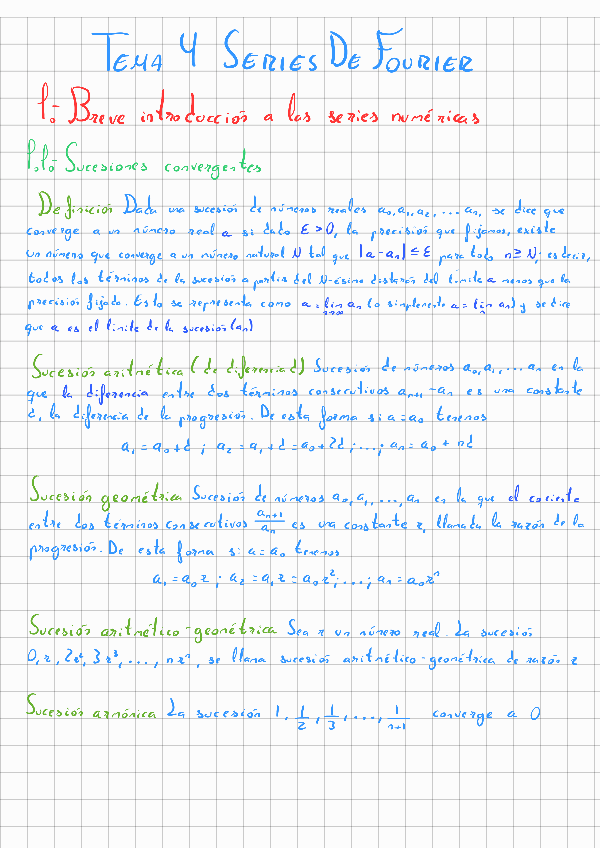 TEMA 4 SERIES DE FOURIER
1.- Breve introducción a las series numéricas
1.1.- Sucesiones convergentes
Definición Dada una sucesión de números reales a₀, a₁, a₂, ... aₙ, se dice que
converge a un número real a si dado ε > 0, la precisión que fijamos, existe
un número que converge a un número natural N tal que |a-aₙ| ≤ ε para todo n ≥ N; es decir,
todos los términos de la sucesión a partir del N-ésimo distarán del límite a menos que la
precisión fijada. Esto se representa como a = lim n→∞ aₙ (o simplemente a = lim n aₙ) y se dice
que a es el límite de la sucesión (aₙ)
Sucesión aritmética (de diferencia d) Sucesión de números a₀, a₁, ... aₙ en la
que la diferencia entre dos términos consecutivos aₙ₊₁ - aₙ es una constante
d, la diferencia de la progresión. De esta forma si a = a₀ tenemos
a₁ = a₀ + d ; a₂ = a₁ + d = a₀ + 2d ; ... ; aₙ = a₀ + nd
Sucesión geométrica Sucesión de números a₀, a₁, ..., aₙ en la que el cociente
entre dos términos consecutivos aₙ₊₁/aₙ es una constante r, llamada la razón de la
progresión. De esta forma si a = a₀ tenemos
a₁ = a₀r ; a₂ = a₁r = a₀r² ; ... ; aₙ = a₀rⁿ
Sucesión aritmético-geométrica Sea r un número real. La sucesión
0, r, 2r², 3r³, ..., nrⁿ, se llama sucesión aritmético-geométrica de razón r
Sucesión armónica La sucesión 1, 1/2, 1/3, ..., 1/n+1 converge a 0